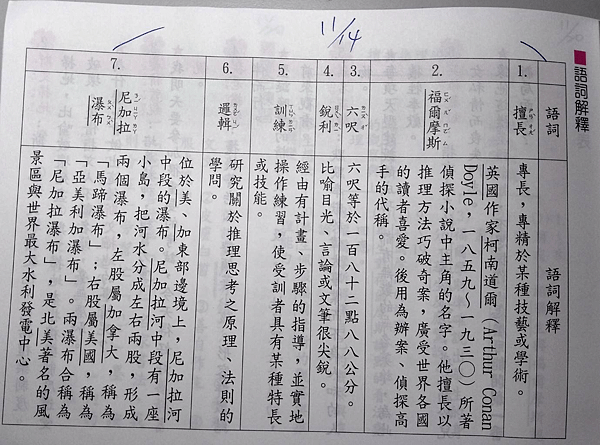 11/14
語詞解釋
語詞
語詞解釋
1.
擅長
專長，專精於某種技藝或學術。
2.
福爾摩斯
英國作家柯南道爾（Arthur Conan
Doyle，一八五九～一九三〇）所著
偵探小說中主角的名字。他擅長以
推理方法巧破奇案，廣受世界各國
的讀者喜愛。後用為辦案、偵探高
手的代稱。
3.
六呎
六呎等於一百八十二點八八公分。
4.
銳利
比喻目光、言論或文筆很尖銳。
5.
訓練
經由有計畫、步驟的指導，並實地
操作練習，使受訓者具有某種特長
或技能。
6.
邏輯
研究關於推理思考之原理、法則的
學問。
7.
尼加拉
瀑布
位於美、加東部邊境上，尼加拉河
中段的瀑布。尼加拉河中段有一座
小島，把河水分成左右兩股，形成
兩個瀑布，左股屬加拿大，稱為
「馬蹄瀑布」；右股屬美國，稱為
「亞美利加瀑布」。兩瀑布合稱為
「尼加拉瀑布」，是北美著名的風
景區與世界最大水利發電中心。